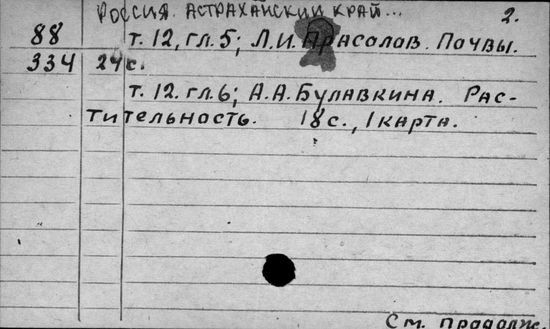 РОССИЯ. АСТРАХАНСКИЙ КРАЙ... 2.
88 т. 12, гл. 5; Л.И. Прасолов. Почвы.
334 24с.
т. 12. гл. 6; А.А. Булавкина. Рас-
тительность. 18 с., 1 карта.
См. продолж.